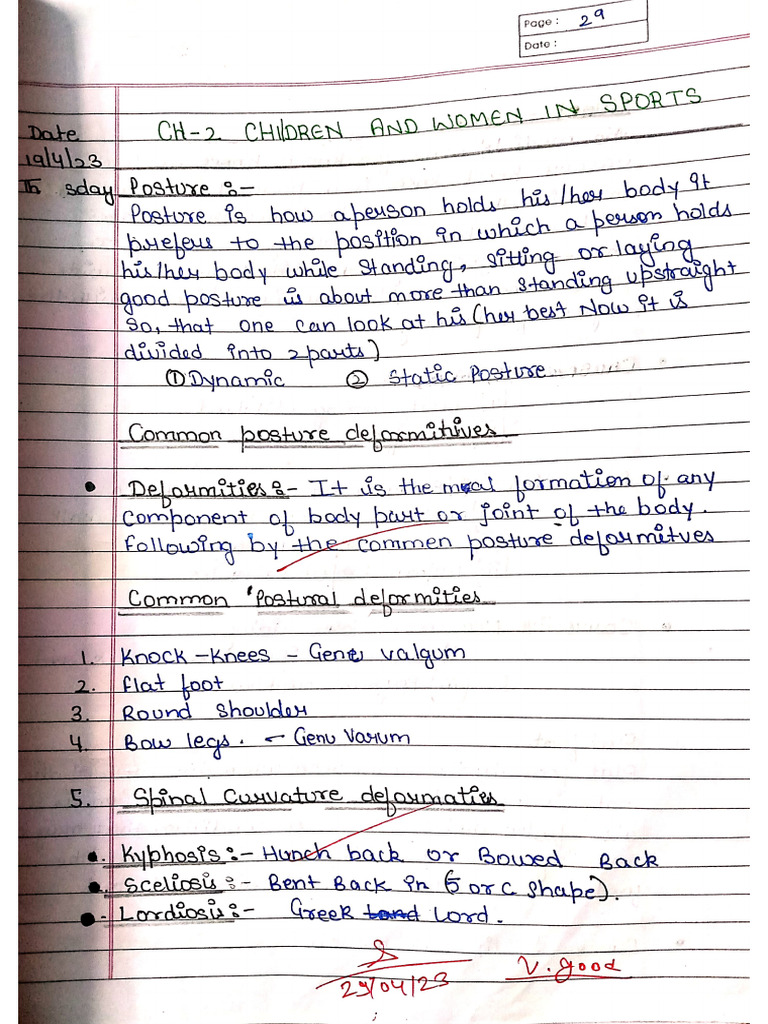 Page: 29
Date:
CH-2 CHILDREN AND WOMEN IN SPORTS
Date
19/4/23
Posture :-
Posture is how a person holds his/her body it
prefers to the position in which a person holds
his/her body while standing, sitting or laying
good posture is about more than standing upstraight
so, that one can look at his (her best Now it is
divided into 2 parts)
① Dynamic ② Static Posture
Common posture deformitives
• Deformities :- It is the formation of any
component of body part or joint of the body.
following by the commen posture deformitves
Common Postural deformities
1. Knock-Knees - Genu valgum
2. flat foot
3. Round shoulder
4. Bow legs. - Genu Varum
5. Spinal Curvature deformaties
• Kyphosis :- Hunch back or Bowed Back
• Sceliosis :- Bent Back in (S or C shape).
• Lordiosis :- Greek Lord.
29/04/23
V. good